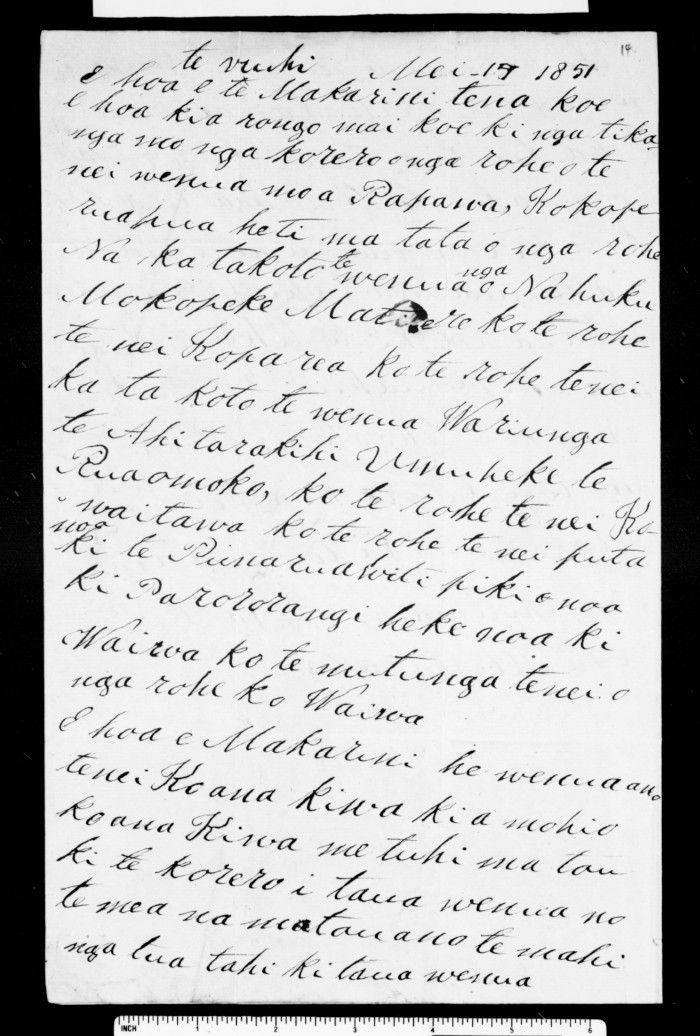 14
te ruchi Mei 15 1851
E hoa e te Makarini tena koe
E hoa kia rongo mai koe ki nga tika
nga mo nga korero o nga rohe o te
nei wenua mo a Rapawa, Kokope
ruapua heti ma tata o nga rohe
Na, ka takoto te wenua nga o Nahuku
Mokopeke Matidere ko te rohe
te nei Koparea ko te rohe tenei
ka ta koto te wenua Wariunga
te Ahitarakihi Umuheke te
Ruaomoko, ko te rohe te nei Ko-
waitawa ko te rohe te nei puta
noa
ki te Punaruawiti piki e noa
ki Parororangi heke noa ki
Wairua ko te mutunga tenei o
nga rohe ko Wairua
E hoa e Makarini he wenua ano
tenei Ko ana kiwa kia mohio
ko ana Kiwa me tuhi ma tou
ki te korero i taua wenua no
te mea na matou ano te mahi
nga tua tahi ki taua wenua
INCH 1 2 3 4 5 6